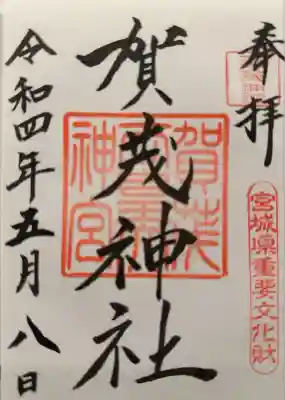 奉拝
宮城県重要文化財
賀茂神社
賀茂
神宮
令和四年五月八日